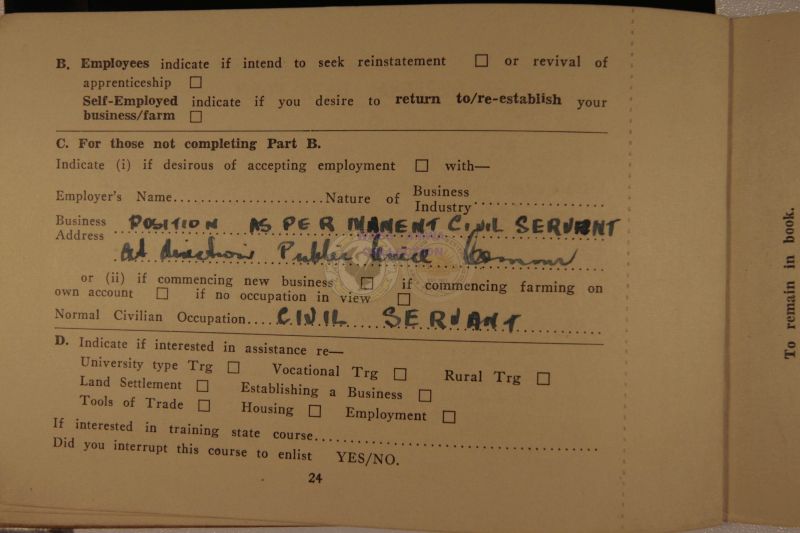 B. Employees indicate if intend to seek reinstatement ☐ or revival of
apprenticeship ☐
Self-Employed indicate if you desire to return to/re-establish your
business/farm ☐
C. For those not completing Part B.
Indicate (i) if desirous of accepting employment ☐ with—
Employer's Name......................Nature of Business Industry..................
Business Address POSITION AS PERMANENT CIVIL SERVANT
At direction Public Service
or (ii) if commencing new business ☐ if commencing farming on
own account ☐ if no occupation in view ☐
Normal Civilian Occupation....CIVIL SERVANT
D. Indicate if interested in assistance re—
University type Trg ☐ Vocational Trg ☐ Rural Trg ☐
Land Settlement ☐ Establishing a Business ☐
Tools of Trade ☐ Housing ☐ Employment ☐
If interested in training state course..........................................
Did you interrupt this course to enlist YES/NO.
24
To remain in book.